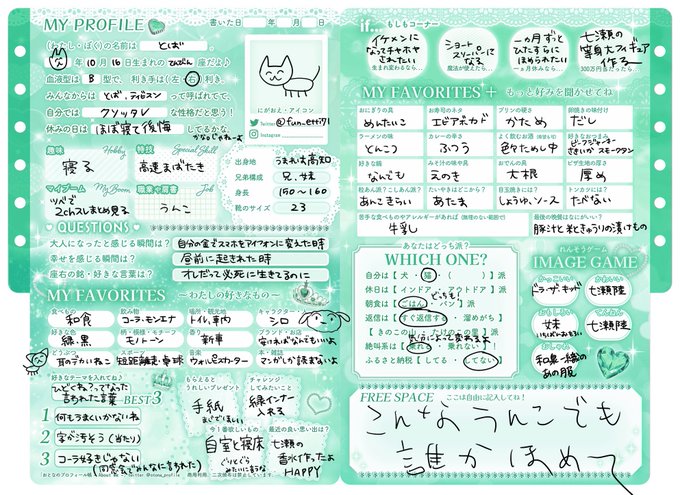 MY PROFILE
書いた日 年 月 日
(わたし・ぼく)の名前は とば。
年 10月 16日生まれの てんびん 座だよ♪
血液型は B 型で、利き手は(左 右)利き、
みんなからは とば、 って呼ばれてて、
自分では クソッタレ な性格だと思う!
休みの日は ほぼ寝て後悔 してるかな、
かなのじゃねーよ
にがおえ・アイコン
Twitter
Instagram
趣味 Hobby
寝る
特技 Special Skill
高速まばたき
マイブーム My Boom
ツベで2chスレまとめ見る
職業や肩書 Job
うんこ
出身地 うまれは高知
兄弟構成 兄、妹
身長 150〜160
靴のサイズ 23
QUESTIONS
大人になったと感じる瞬間は? 自分の金でスマホをアイフォンに変えた時
幸せを感じる瞬間は? 昼前に起きれた時
座右の銘・好きな言葉は? オレだって必死に生きてるのに
MY FAVORITES 〜わたしの好きなもの〜
食べもの 和食
飲み物 コーラ・モンエナ
場所・観光地 トイレ、車内
キャラクター シロ
好きな色 緑、黒
柄・模様・モチーフ モノトーン
香り 新車
ブランド・お店 安ければなんでもいいよ
どうぶつ 耳のデカいねこ
スポーツ 短距離走・卓球
音楽 ウォルピスカーター
本・雑誌 マンガしか読まないよ
好きなテーマを入れてね♪
ひどくね?ってなった言われた言葉 BEST3
1 何もうまくいかないね
2 字が汚そう(当たり)
3 コーラ好きじゃない
(同窓会でみんなに言われた)
もらえるとうれしいプレゼント
手紙
まじでほしい
チャレンジしてみたいこと
緑インナー入れる
今1番欲しいもの
自室と寝床
ぐりとぐらみたいに言うな
最近の良い思い出は?
七瀬の香水作ったよHAPPY
if... もしもコーナー
イケメンになってチヤホヤされたい
生まれ変わるなら…
ショートスリーパーになる
魔法が使えたら…
一ヵ月ずっとひたすらにほめられたい
1ヵ月休みなら…
七瀬の等身大フィギュア作る
300万円当たったら…
MY FAVORITES + もっと好みを聞かせてね
おにぎりの具 めんたいこ
お寿司のネタ エビアボカド
プリンの硬さ かため
卵焼きの味付け だし
ラーメンの味 とんこつ
カレーの辛さ ふつう
よく飲むお酒 色々ためし中
好きなおつまみ ビーフジャーキー さきいか スモークタン
好きな鍋 なんでも
みそ汁の味や具 えのき
おでんの具 大根
ピザ生地の厚さ 厚め
粒あん派?こしあん派? あんこきらい
たいやきはどこから? あたま
目玉焼きには? しょうゆ、ソース
トンカツには? たべない
苦手な食べものやアレルギーがあれば
牛乳
最後の晩餐はなにがいい?
豚汁と米ときゅうりの漬けもの
あなたはどっち派?
WHICH ONE?
自分は【 犬・猫・( ) 】派
どっちも!
休日は【 インドア ・ アウトドア 】派
朝食は【 ごはん ・ パン 】派
返信は【 すぐ返信する ・ 溜めがち 】
【 きのこの山 ・ たけのこの里 】派
気分によって変わるよ
絶叫系は【 乗れる ・ 乗れない 】!
ふるさと納税【 してる ・ してない 】
れんそうゲーム
IMAGE GAME
かっこいい ビラ・ザ・キッド
かわいい 七瀬陸
おもしろい 妹
いちばんおもろい
てんさい 七瀬陸
おしゃれ 和泉一織のあの服
FREE SPACE ここは自由に記入してね!
こんなうんこでも
誰かほめて